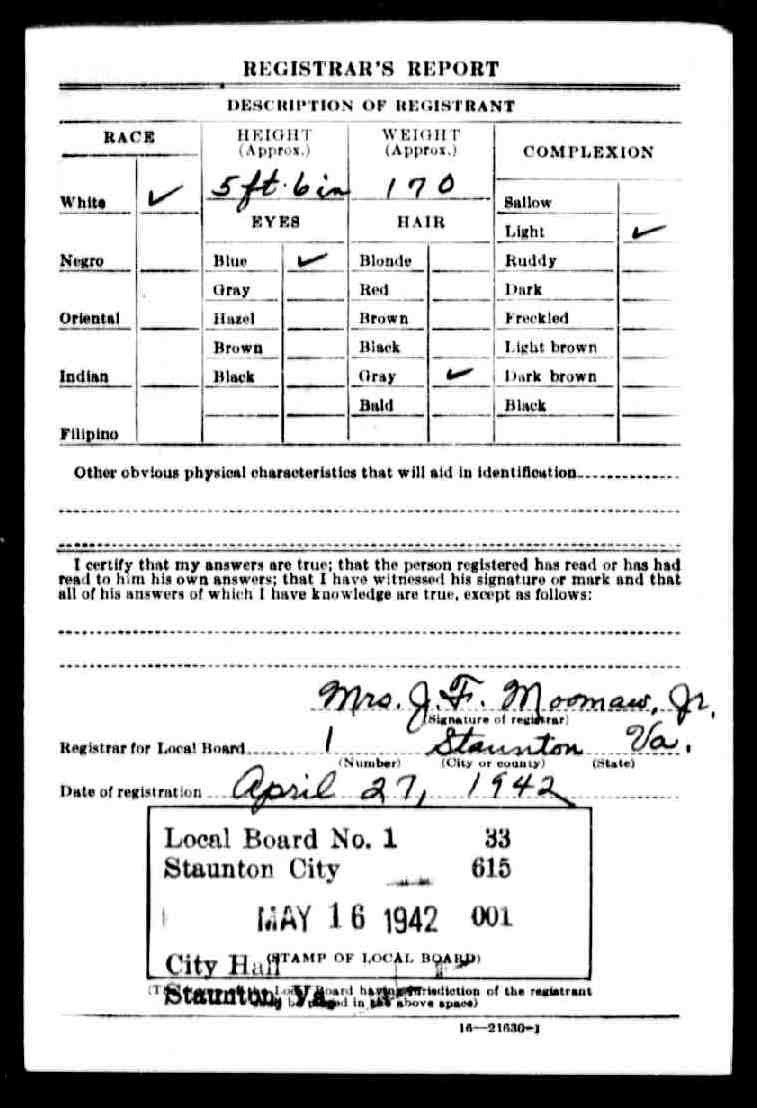 REGISTRAR'S REPORT
DESCRIPTION OF REGISTRANT
RACE HEIGHT (Approx.) WEIGHT (Approx.) COMPLEXION
White ✓ 5 ft. 6 in 170 Sallow
EYES HAIR Light ✓
Negro Blue ✓ Blonde Ruddy
Gray Red Dark
Oriental Hazel Brown Freckled
Brown Black Light brown
Indian Black Gray ✓ Dark brown
Bald Black
Filipino
Other obvious physical characteristics that will aid in identification
I certify that my answers are true; that the person registered has read or has had
read to him his own answers; that I have witnessed his signature or mark and that
all of his answers of which I have knowledge are true, except as follows:
Mrs. J. F. Moomaw, Jr.
(Signature of registrar)
Registrar for Local Board 1 Staunton Va.
(Number) (City or county) (State)
Date of registration April 27, 1942
Local Board No. 1 33
Staunton City 615
MAY 16 1942 001
City Hall
(STAMP OF LOCAL BOARD)
Staunton, Va.
Local Board having jurisdiction of the registrant
in the above space)
16—21630-1